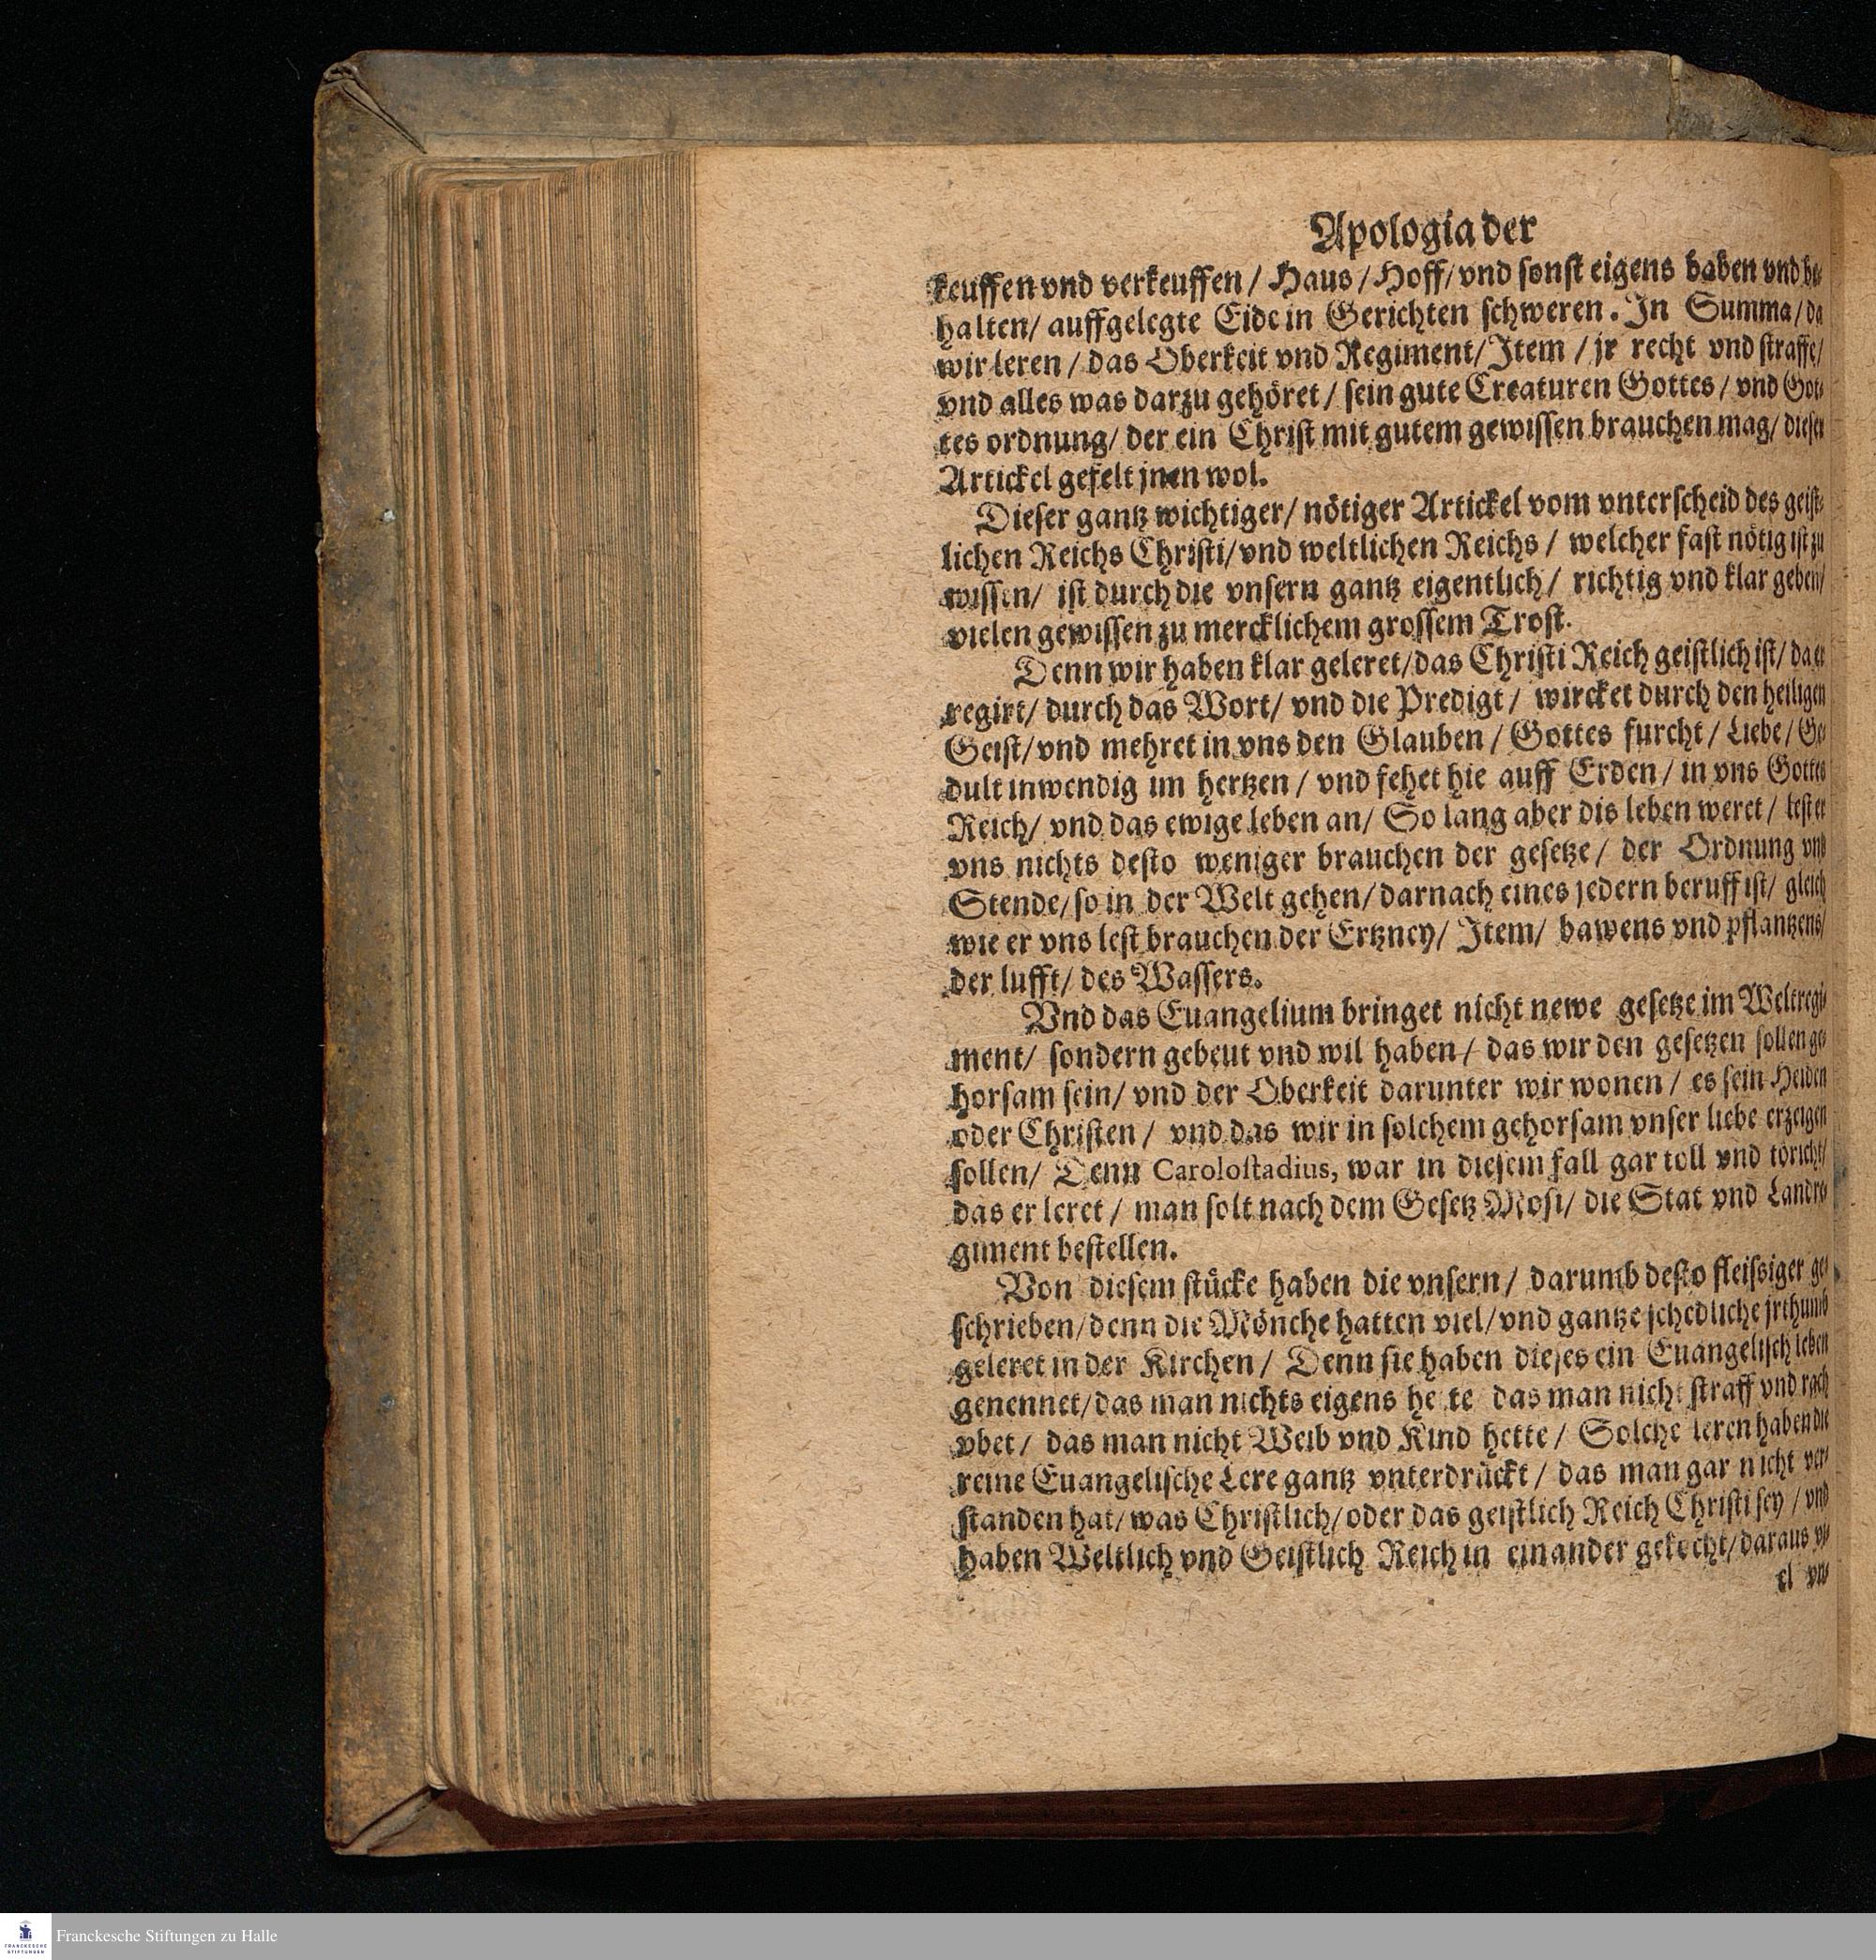 Apologia der
keuffen vnd verkeuffen / Haus / Hoff / vnd sonst eigens haben vnd be⸗
halten / auffgelegte Eide in Gerichten schweren. In Summa / da
wir leren / das Oberkeit vnd Regiment / Item / jr recht vnd straffe /
vnd alles was darzu gehöret / sein gute Creaturen Gottes / vnd Got⸗
tes ordnung / der ein Christ mit gutem gewissen brauchen mag / dieser
Artickel gefelt jnen wol.
Dieser gantz wichtiger / nötiger Artickel vom vnterscheid des geist⸗
lichen Reichs Christi / vnd weltlichen Reichs / welcher fast nötig ist zu
wissen / ist durch die vnsern gantz eigentlich / richtig vnd klar geben /
vielen gewissen zu mercklichem grossem Trost.
Denn wir haben klar geleret / das Christi Reich geistlich ist / da er
regirt / durch das Wort / vnd die Predigt / wircket durch den heiligen
Geist / vnd mehret in vns den Glauben / Gottes furcht / Liebe / Ge⸗
dult inwendig im hertzen / vnd fehet hie auff Erden / in vns Gottes
Reich / vnd das ewige leben an / So lang aber dis leben weret / lest er
vns nichts desto weniger brauchen der gesetze / der Ordnung vnd
Stende / so in der Welt gehen / darnach eines jedern beruff ist / gleich
wie er vns lest brauchen der Ertzney / Item / bawens vnd pflantzens /
der lufft / des Wassers.
Vnd das Euangelium bringet nicht newe gesetze im Weltregi⸗
ment / sondern gebeut vnd wil haben / das wir den gesetzen sollen ge⸗
horsam sein / vnd der Oberkeit darunter wir wonen / es sein Heiden
oder Christen / vnd das wir in solchem gehorsam vnser liebe erzeigen
sollen / Denn Carolostadius, war in diesem fall gar toll vnd töricht /
das er leret / man solt nach dem Gesetz Mosi / die Stat vnd Landre⸗
giment bestellen.
Von diesem stücke haben die vnsern / darumb desto fleissiger ge⸗
schrieben / denn die Mönche hatten viel / vnd gantze schedliche jrthumb
geleret in der Kirchen / Denn sie haben dieses ein Euangelisch leben
genennet / das man nichts eigens hette das man nicht straff vnd rach
vbet / das man nicht Weib vnd Kind hette / Solche leren haben die
reine Euangelische Lere gantz vnterdrückt / das man gar nicht ver⸗
standen hat / was Christlich / oder das geistlich Reich Christi sey / vnd
haben Weltlich vnd Geistlich Reich in einander gekocht / daraus vi⸗
el vn⸗
Franckesche Stiftungen zu Halle
FRANCKESCHE
STIFTUNGEN